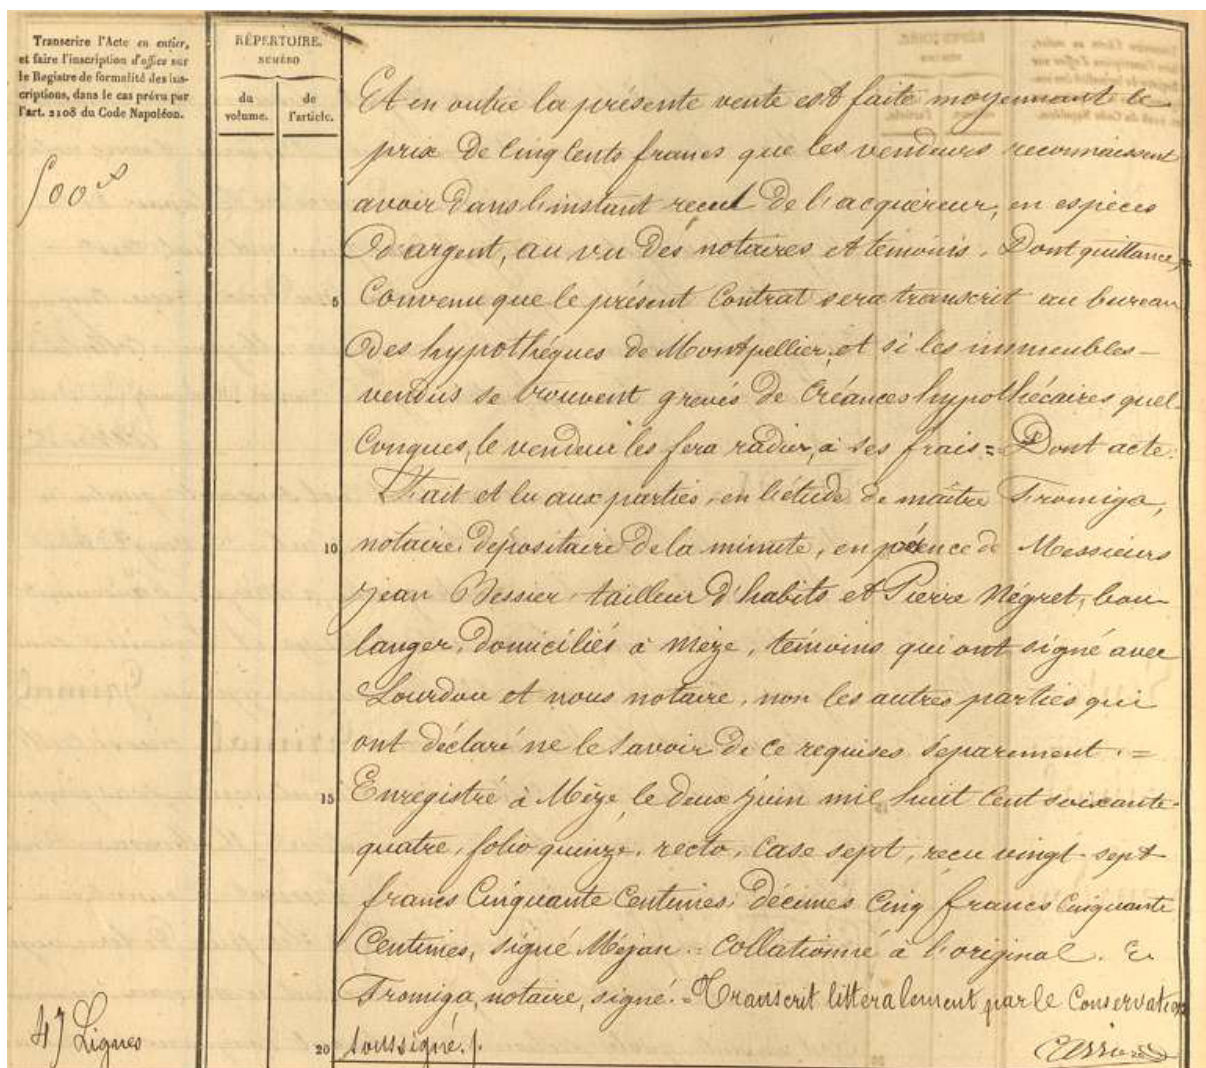 Transcrire l'Acte en entier,
et faire l'inscription d'office sur
le Registre de formalité des ins-
criptions, dans le cas prévu par
l'art. 2108 du Code Napoléon.
RÉPERTOIRE.
NUMÉRO
du volume.
de l'article.
500
Et en outre la présente vente est faite moyennant le
prix de Cinq Cents francs que les vendeurs reconnaissent
avoir dans l'instant recut de l'acquéreur, en espèces
d'argent, au vu des notaires et témoins. Dont quittance,=
5 Convenu que le présent Contrat sera transcrit au bureau
des hypothéques de Montpellier, et si les immeubles-
vendus se trouvent grevés de Créances hypothécaires quel-
Conques, le vendeur les fera radier, à ses frais = Dont acte.
Fait et lu aux parties, en l'étude de maître Fromiga,
10 notaire, dépositaire de la minute, en présence de Messieurs
Jean Bessier tailleur d'habits et Pierre Négret, bou-
langer, domiciliés à Mèze, témoins qui ont signé avec
Lourdou et nous notaire, non les autres parties qui
ont déclaré ne le savoir de ce requises séparement. =
15 Enregistré à Mèze, le deux juin mil huit Cent soixante-
quatre, folio quinze, recto, Case sept, recu vingt sept
francs Cinquante Centimes, décimes Cinq francs Cinquante
Centimes, signé Méjan = Collationné à l'original.
Fromiga, notaire, signé. = Transcrit littéralement par le Conservateur
20 soussigné.
47 Lignes